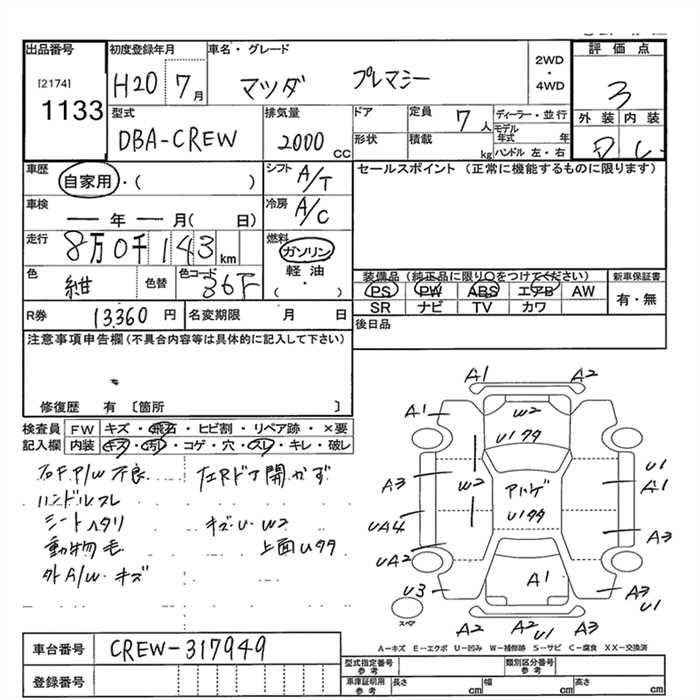 出品番号
[2174]
1133
初度登録年月
H20 7月
車名・グレード
マツダ プレマシー
2WD
・
4WD
評価点
3
外装 内装
D C
型式
DBA-CREW
排気量
2000 CC
ドア
形状
定員 7人
積載 kg
ディーラー・並行
モデル年式 年
ハンドル 左・右
車歴
自家用・( )
シフト A/T
セールスポイント (正常に機能するものに限ります)
車検
年 月( 日)
冷房 A/C
走行
8万0千143km
燃料
ガソリン
軽油
( ・ )
色
紺
色替
色コード
36F
装備品(純正品に限り○をつけてください)
新車保証書
PS PW ABS エアB AW
有・無
SR ナビ TV カワ
R券 13360円
名変期限 月 日
後日品
注意事項申告欄(不具合内容等は具体的に記入して下さい)
修復歴 有〔箇所 〕
検査員 FW キズ・飛石・ヒビ割・リペア跡・×要
記入欄 内装 キズ・汚れ・コゲ・穴・スレ・キレ・破レ
右F P/W 不良 左Rドア開かず
ハンドルスレ
シートヘタリ キズ・U・W2
動物毛 上面Uタタ
外A/W・キズ
A1 A2
A1 W2
U1タタ
A3 W2 アハゲ U1 A1
U1タタ
UA4 A3
UA2
U3 A1 A3 U1
スペア
A2 A2 U1 A3
A-キズ E-エクボ U-凹み W-補修跡 S-サビ C-腐食 XX-交換済
車台番号 CREW-317949
登録番号
型式指定番号参考
類別区分番号参考
車庫証明用参考 長さ cm 幅 cm 高さ cm